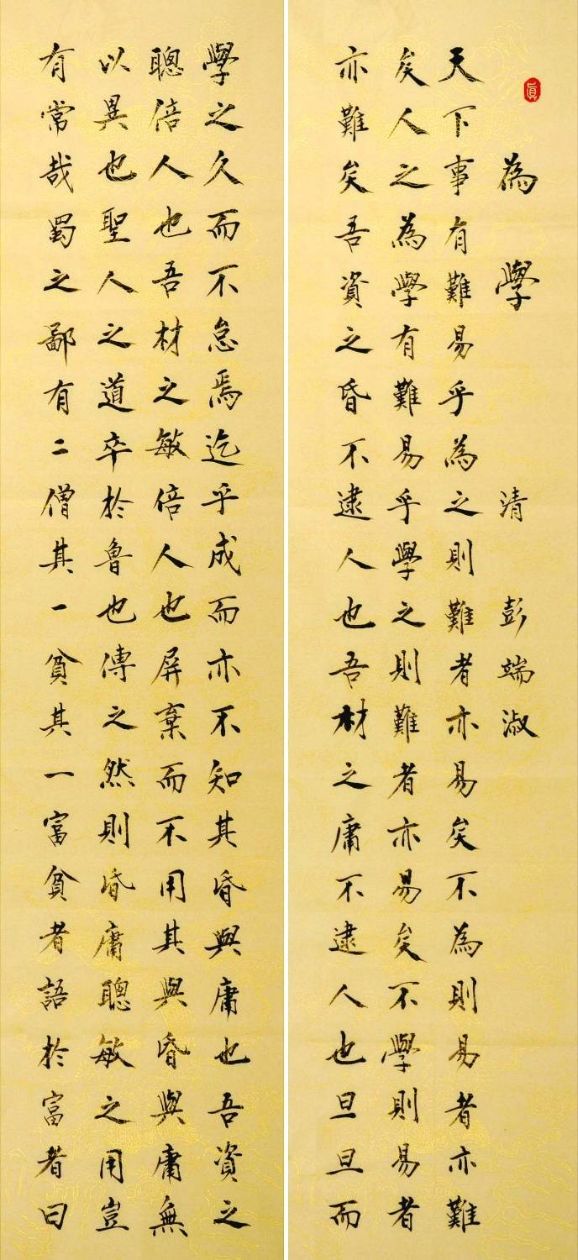 為學 清 彭端淑
天下事有難易乎為之則難者亦易矣不為則易者亦難
矣人之為學有難易乎學之則難者亦易矣不學則易者
亦難矣吾資之昏不逮人也吾材之庸不逮人也旦旦而
學之久而不怠焉迄乎成而亦不知其昏與庸也吾資之
聰倍人也吾材之敏倍人也屏棄而不用其與昏與庸無
以異也聖人之道卒於魯也傳之然則昏庸聰敏之用豈
有常哉蜀之鄙有二僧其一貧其一富貧者語於富者曰